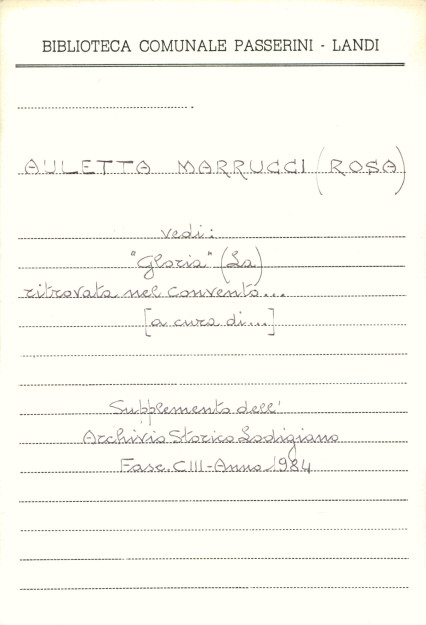 BIBLIOTECA COMUNALE PASSERINI - LANDI
AULETTA MARRUCCI (ROSA)
vedi:
"Gloria" (La)
ritrovata nel convento...
[a cura di...]
Supplemento dell'
Archivio Storico Lodigiano
Fasc. CIII - Anno 1984